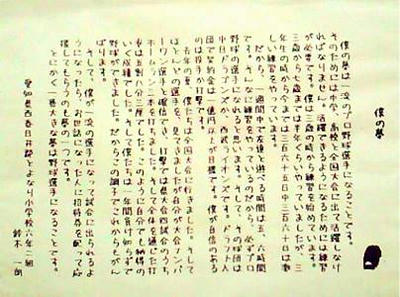 僕の夢
僕の夢は一流のプロ野球選手になることです。
そのためには中学、高校と全国大会に出て活躍しなけ
ればなりません。活躍できるようになるためには練習
が必要です。僕は三歳の時から練習を始めています。
三歳から七才までは半年くらいやっていましたが、三
年生の時から今までは三百六十五日中三百六十日は激
しい練習をやっています。
だから、一週間中で友達と遊べる時間は五、六時間
です。そんなに練習をやっているのだから、必ずプロ
野球の選手になれると思います。そして、その球団は
中日ドラゴンズか、西武ライオンズです。ドラフト入
団で契約金は一億円以上が目標です。僕が自信のある
のは投手か打撃です。
去年の夏、僕たちは全国大会に行きました。そして
ほとんどの選手を見てきましたが自分が大会ナンバ
ーワン選手と確信でき、打撃では県大会四試合のうち
ホームラン三本を打ちました。そして、全体を通した打
率は五割八分三厘でした。このように自分でも納得の
いく成績でした。そして、僕たちは一年間負け知らずで
野球ができました。だから、この調子でこれからもがん
ばります。
そして、僕が一流の選手になって試合に出られるよ
うになったら、お世話になった人に招待券を配って応
援してもらうのも夢の一つです。
とにかく一番大きな夢は野球選手になることです。
愛知県西春日井郡とよなり小学校六年二組
鈴木一朗